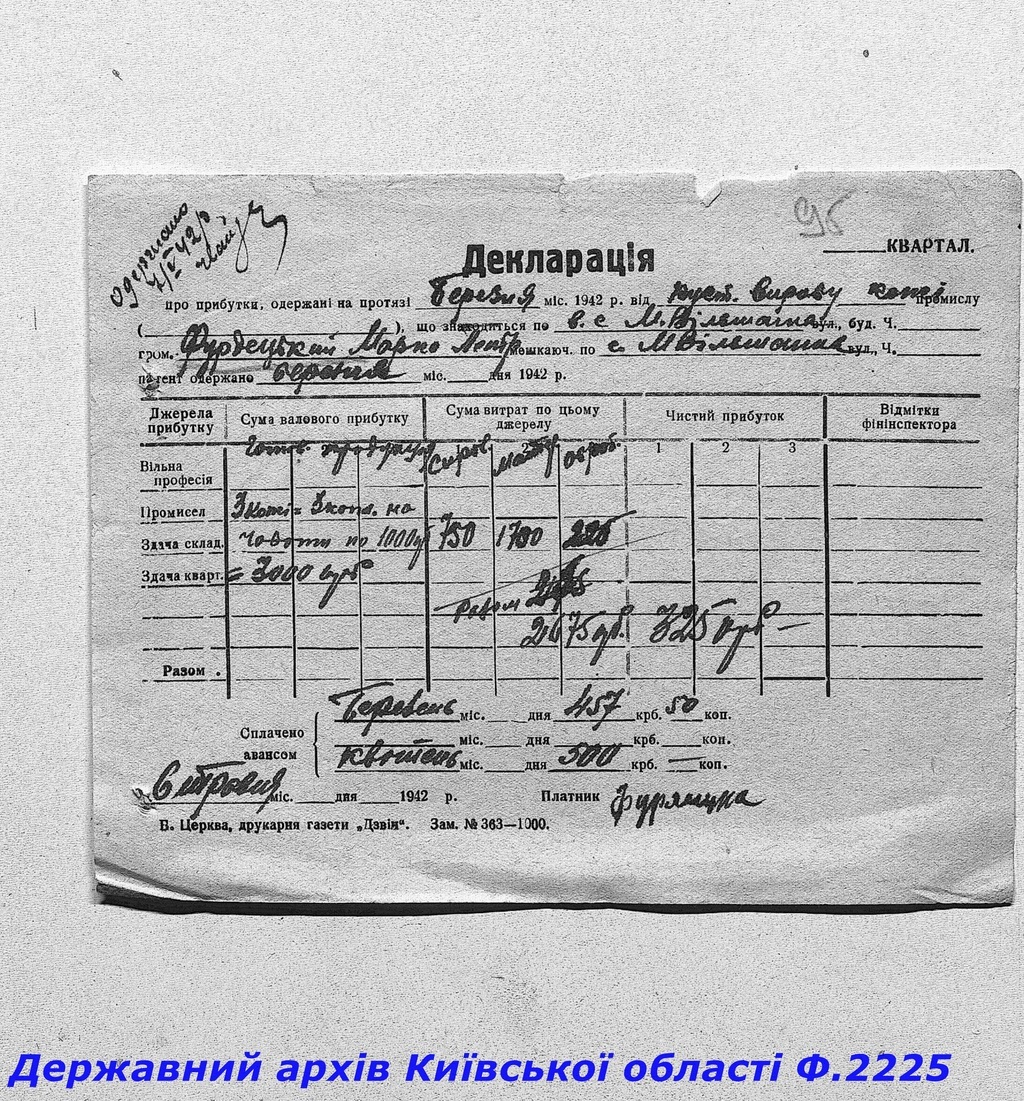 одержано
96
Декларація
КВАРТАЛ.
про прибутки, одержані на протязі Березня міс. 1942 р. від куст. промислу
( ), що знаходиться по в. с. М. Вільшанка вул., буд. Ч.
гром. Марко Петр. мешкаюч. по с. М Вільшанка вул., Ч.
патент одержано березня міс. дня 1942 р.
Джерела прибутку Сума валового прибутку Сума витрат по цьому джерелу Чистий прибуток Відмітки фінінспектора
Готов. продукція Сиров. оброб. 1 2 3
Вільна професія
Промисел 3 кожі = 3 кож. на
Здача склад. чоботи по 1000 руб 750 1700 225
Здача кварт. = 3000 руб
Разом
2675 руб. 325 руб —
Разом .
Сплачено авансом
Березень міс. дня 457 крб. 50 коп.
міс. дня крб. коп.
квітень міс. дня 500 крб. — коп.
міс. дня 1942 р. Платник
Б. Церква, друкарня газети „Дзвін". Зам. № 363—1000.
Державний архів Київської області Ф.2225